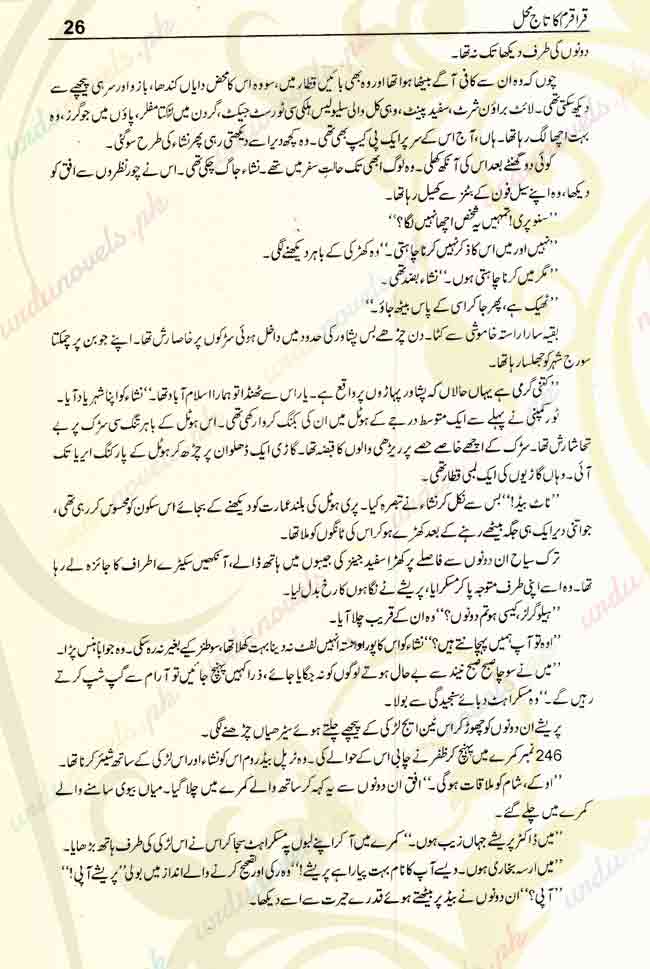 قراقرم کا تاج محل
26
دونوں کی طرف دیکھا تک نہ تھا۔
چوں کہ وہ ان سے کافی آگے بیٹھا ہوا تھا اور وہ بھی بائیں قطار میں، سو وہ اس کا محض دایاں کندھا، بازو اور سر ہی پیچھے سے
دیکھ سکتی تھی۔ لائٹ براؤن شرٹ، سفید پینٹ، وہی کل والی سلیولیس ہلکی سی ٹورسٹ جیکٹ، گردن میں لٹکتا مفلر، پاؤں میں جوگرز، وہ
بہت اچھا لگ رہا تھا۔ ہاں، آج اس کے سر پر ایک پی کیپ بھی تھی۔ وہ کچھ دیر اسے دیکھتی رہی پھر نشاء کی طرح سو گئی۔
کوئی دو گھنٹے بعد اس کی آنکھ کھلی۔ وہ لوگ ابھی تک حالتِ سفر میں تھے۔ نشاء جاگ چکی تھی۔ اس نے چور نظروں سے افق کو
دیکھا، وہ اپنے سیل فون کے بٹنز سے کھیل رہا تھا۔
”سنو پری! تمہیں یہ شخص اچھا نہیں لگا؟“
”نہیں اور میں اس کا ذکر نہیں کرنا چاہتی۔“ وہ کھڑکی کے باہر دیکھنے لگی۔
”مگر میں کرنا چاہتی ہوں۔“ نشاء بضد تھی۔
”ٹھیک ہے، پھر جا کر اسی کے پاس بیٹھ جاؤ۔“
بقیہ سارا راستہ خاموشی سے کٹا۔ دن چڑھے بس پشاور کی حدود میں داخل ہوئی سڑکوں پر خاصا رش تھا۔ اپنے جوبن پر چمکتا
سورج شہر کو جھلسا رہا تھا۔
”کتنی گرمی ہے یہاں حالاں کہ پشاور پہاڑوں پر واقع ہے۔ یار اس سے ٹھنڈا تو ہمارا اسلام آباد تھا۔“ نشاء کو اپنا شہر یاد آیا۔
ٹور کمپنی نے پہلے سے ایک متوسط درجے کے ہوٹل میں ان کی بکنگ کروا رکھی تھی۔ اس ہوٹل کے باہر تنگ سی سڑک پر بے
تحاشا رش تھا۔ سڑک کے اچھے خاصے حصے پر ریڑھی والوں کا قبضہ تھا۔ گاڑی ایک ڈھلوان پر چڑھ کر ہوٹل کے پارکنگ ایریا تک
آئی۔ وہاں گاڑیوں کی ایک لمبی قطار تھی۔
”ناٹ بیڈ!“ بس سے نکل کر نشاء نے تبصرہ کیا۔ پری ہوٹل کی بلند عمارت کو دیکھنے کے بجائے اس سکون کو محسوس کر رہی تھی،
جو اتنی دیر ایک ہی جگہ بیٹھے رہنے کے بعد کھڑے ہو کر اس کی ٹانگوں کو ملا تھا۔
ترک سیاح ان دونوں سے فاصلے پر کھڑا سفید جینز کی جیبوں میں ہاتھ ڈالے، آنکھیں سکیڑے اطراف کا جائزہ لے رہا
تھا۔ وہ اسے اپنی طرف متوجہ پا کر مسکرایا، پریشے نے نگاہوں کا رخ بدل لیا۔
”ہیلو گرلز، کیسی ہو تم دونوں؟“ وہ ان کے قریب چلا آیا۔
”اوہ تو آپ ہمیں پہچانتے ہیں؟“ نشاء کو اس کا پورا راستہ انہیں لفٹ نہ دینا بہت کھلا تھا، سو طنز کیے بغیر نہ رہ سکی۔ وہ جواباً ہنس پڑا۔
”میں نے سوچا صبح صبح نیند سے بے حال ہوتے لوگوں کو نہ جگایا جائے، ذرا کہیں پہنچ جائیں تو آرام سے گپ شپ کرتے
رہیں گے۔“ وہ مسکراہٹ دبائے سنجیدگی سے بولا۔
پریشے ان دونوں کو چھوڑ کر اس ٹین ایج لڑکی کے پیچھے چلتے ہوئے سیڑھیاں چڑھنے لگی۔
246 نمبر کمرے میں پہنچ کر ظفر نے چابی اس کے حوالے کی۔ وہ ٹرپل بیڈروم اس کو نشاء اور اس لڑکی کے ساتھ شیئر کرنا تھا۔
”اوکے، شام کو ملاقات ہوگی۔“ افق ان دونوں سے یہ کہہ کر ساتھ والے کمرے میں چلا گیا۔ میاں بیوی سامنے والے
کمرے میں چلے گئے۔
”میں ڈاکٹر پریشے جہاں زیب ہوں۔“ کمرے میں آ کر اپنے لبوں پہ مسکراہٹ سجا کر اس نے اس لڑکی کی طرف ہاتھ بڑھایا۔
”میں ارسہ بخاری ہوں۔ ویسے آپ کا نام بہت پیارا ہے پریشے!“ وہ رکی اور تصحیح کرنے والے انداز میں بولی ”پریشے آپی!“
”آپی؟“ ان دونوں نے بیڈ پر بیٹھتے ہوئے قدرے حیرت سے اسے دیکھا۔
urdunovels.pk